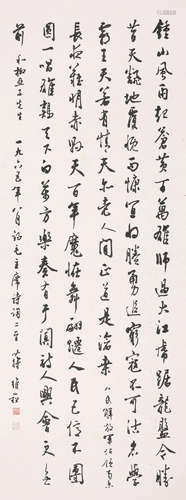 鍾山風雨起蒼黄百萬雄師過大江虎踞龍盤今勝
昔天翻地覆慨而慷宜將剩勇追窮寇不可沽名學
霸王天若有情天亦老人間正道是滄桑 人民解放軍佔領南京
長夜難明赤縣天百年魔怪舞翩躚人民五億不團
圓一唱雄鷄天下白萬方樂奏有于闐詩人興會更無
前 和柳亞子先生 一九六五年八月 毛主席詩詞二首